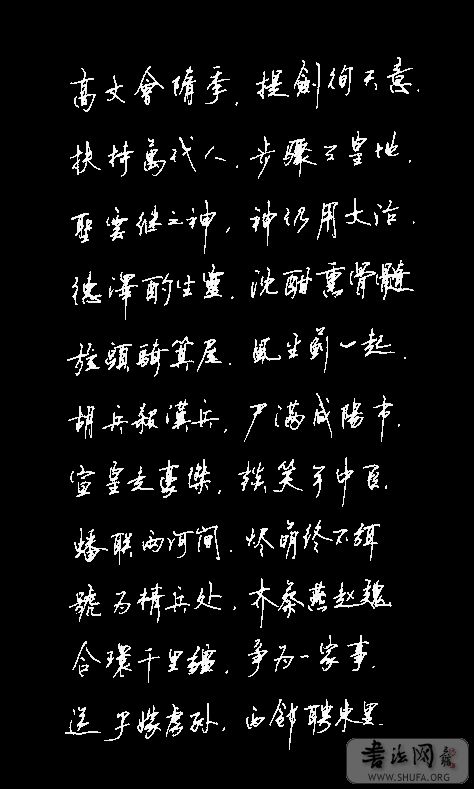 高文會隋季，提劍徇天意．
扶持萬代人，步驟三皇地．
聖云継之神，神仍用文治．
德澤酌生靈，沈酣熏骨髓
旄頭騎箕尾，風塵薊一起．
胡兵殺漢兵，尸滿咸陽市．
宣皇走豪傑，談笑开中否．
蟠联两河间，烬萌终不弭
號为精兵处，齐蔡燕赵魏
合環千里疆，争为一家事．
逆子嫁虏孙，西鄰聘東里．
書法网
WWW.SHUFA.ORG